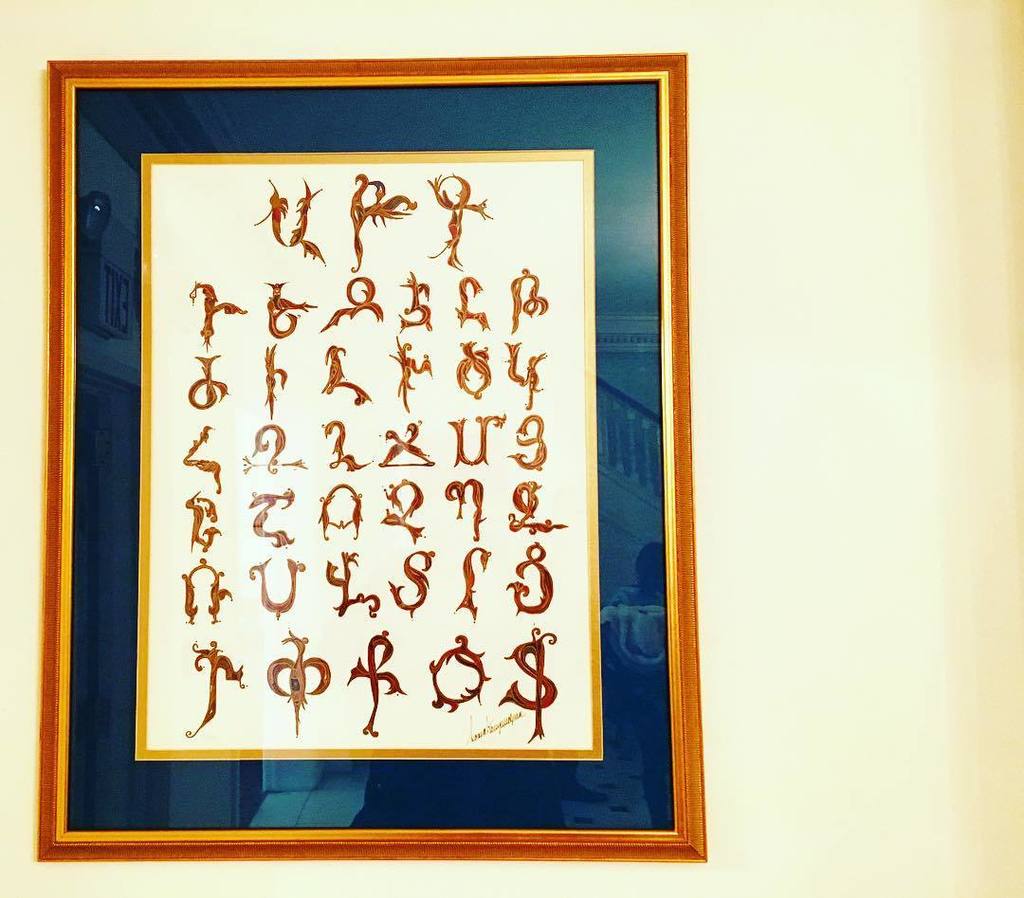 Ա Բ Գ
Դ Ե Զ Է Ը Թ
Ժ Ի Լ Խ Ծ Կ
Հ Ձ Ղ Ճ Մ Յ
Ն Շ Ո Չ Պ Ջ
Ռ Ս Վ Տ Ր Ց
Ւ Փ Ք Օ Ֆ